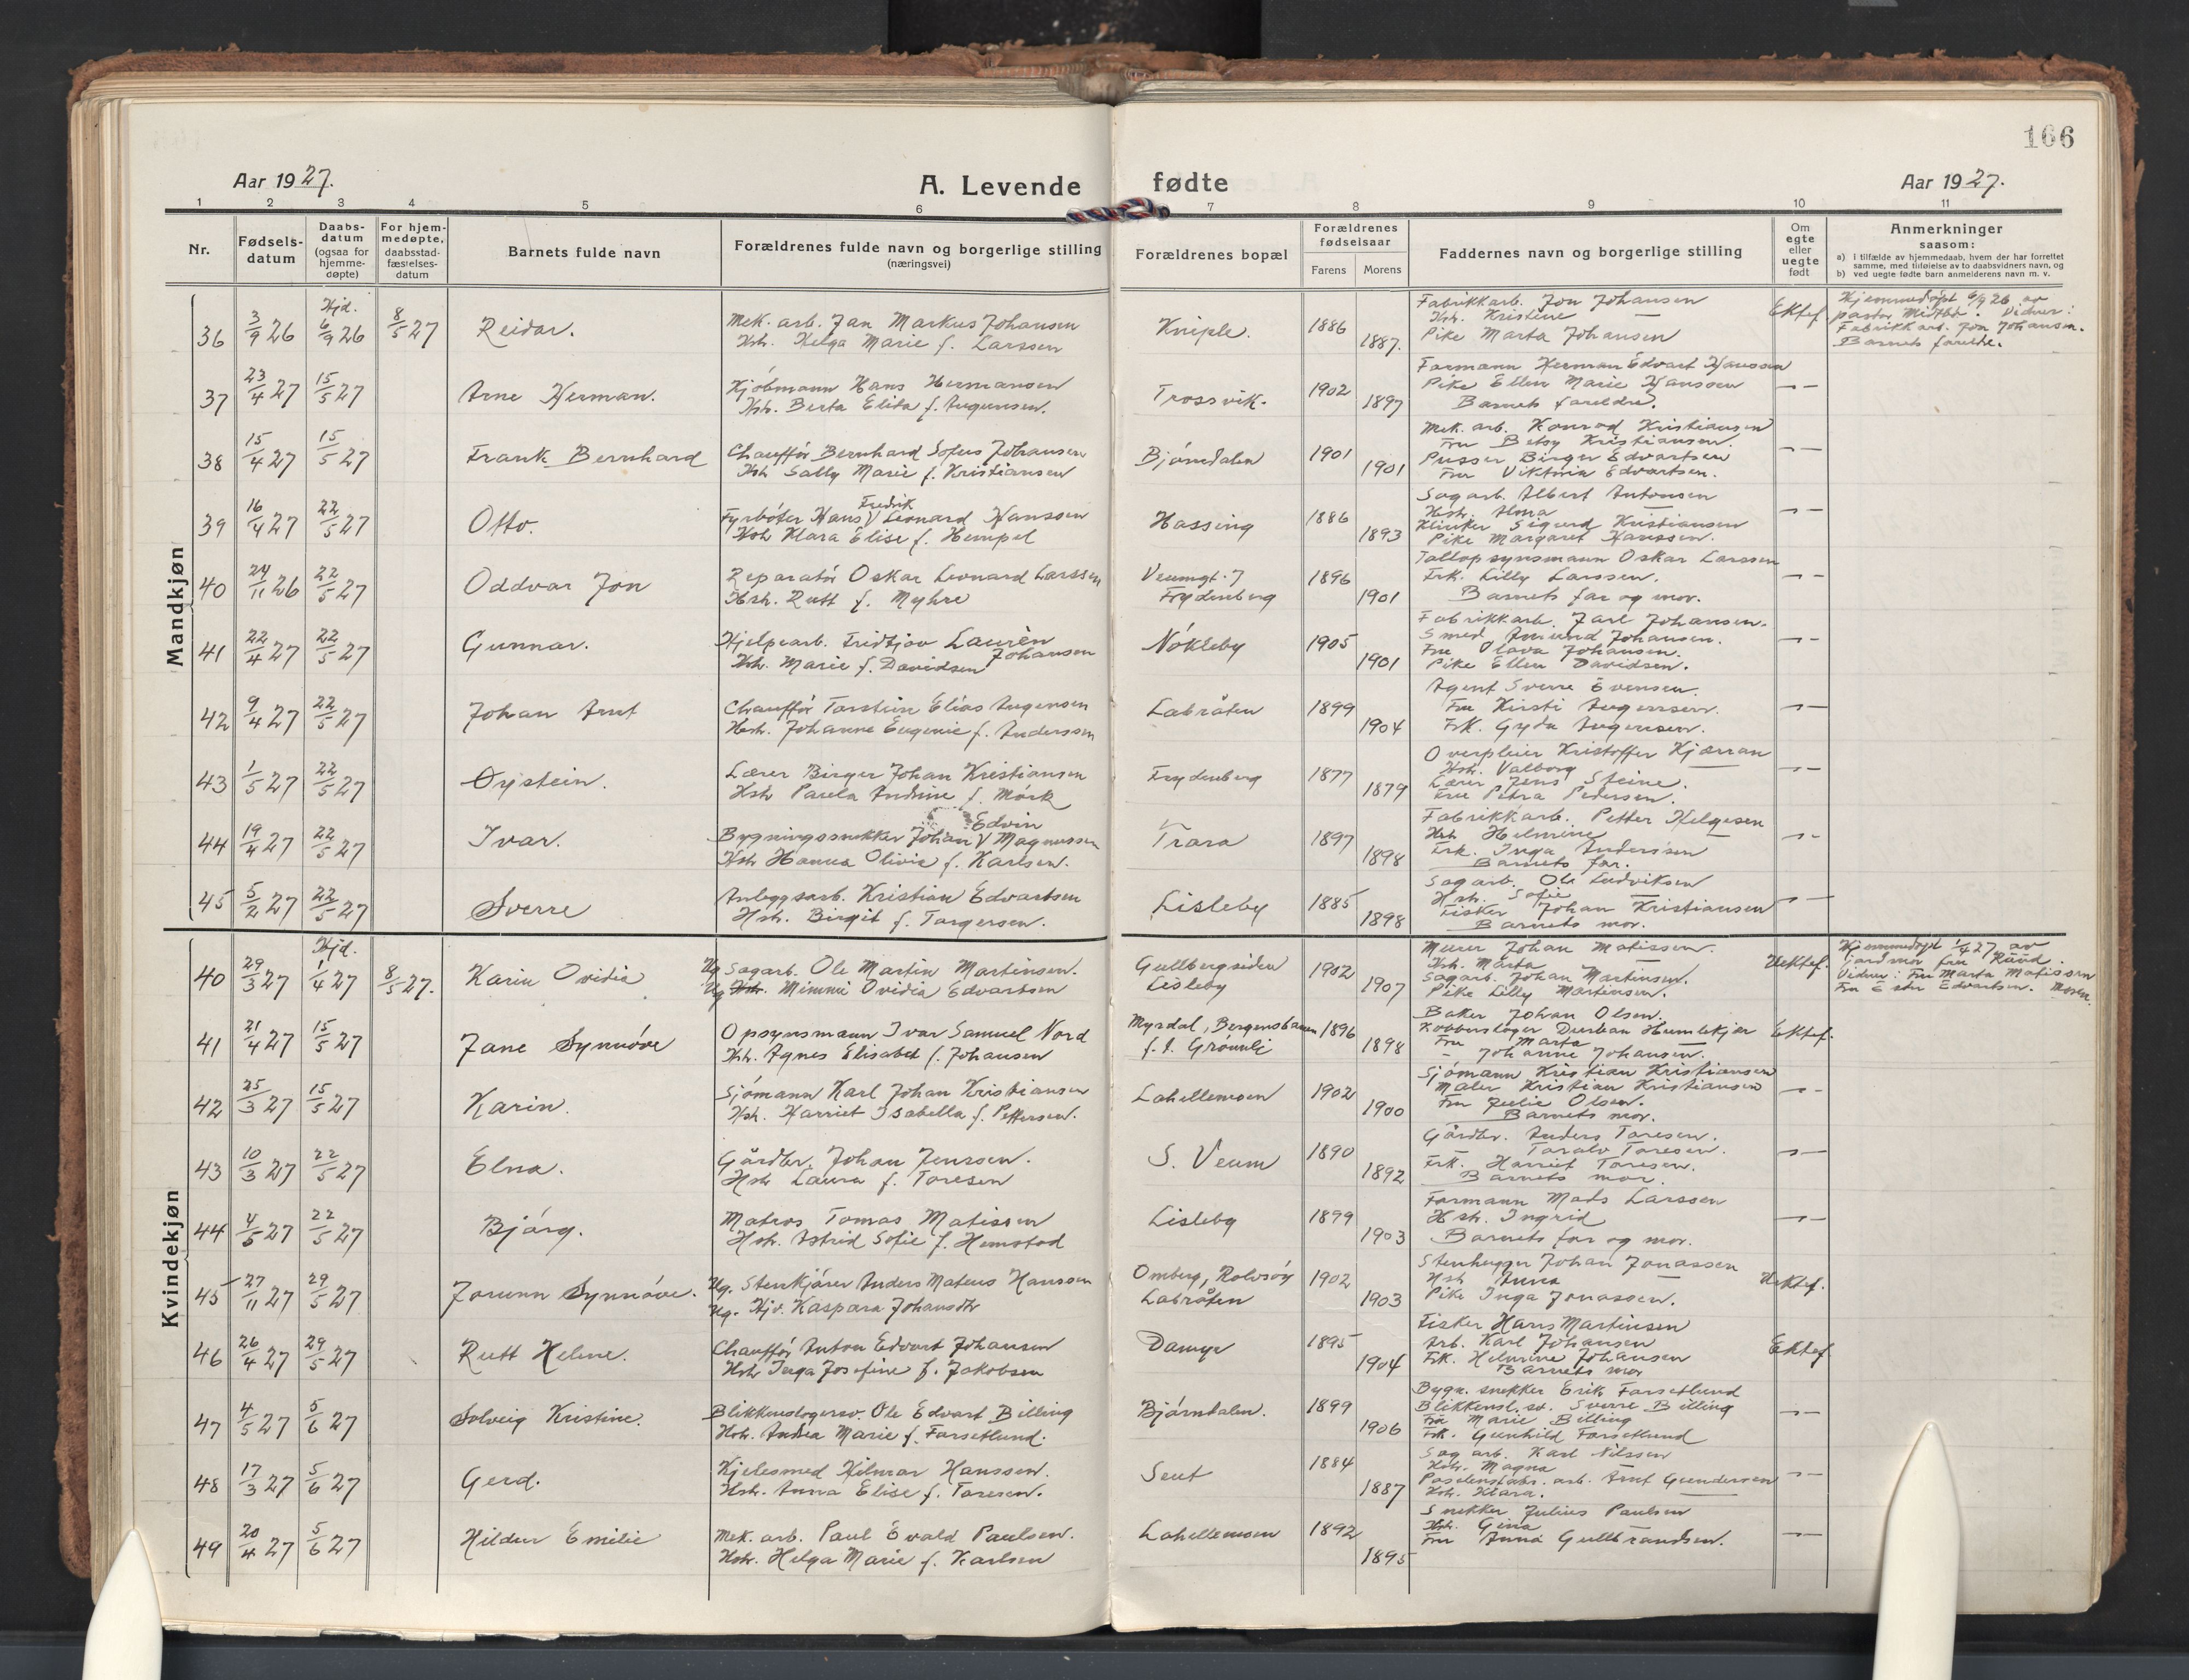 166
Aar 1927.
A. Levende fødte
Aar 1927.
1 2 3 4 5 6 7 8 9 10 11
Nr.
Fødsels-
datum
Daabs-
datum
(ogsaa for
hjemme-
døpte)
For hjem-
medøpte,
daabsstad-
fæstelses-
datum
Barnets fulde navn
Forældrenes fulde navn og borgerlige stilling
(næringsvei)
Forældrenes bopæl
Forældrenes
fødselsaar
Farens Morens
Faddernes navn og borgerlige stilling
Om
egte
eller
uegte
født
Anmerkninger
saasom:
a) i tilfælde av hjemmedaab, hvem der har forrettet
samme, med tilføielse av to daabsvidners navn, og
b) ved uegte fødte barn anmelderens navn m. v.
Mandkjøn
36 3/9 26 Hjd. 6/9 26 8/5 27 Reidar.
Mek. arb. Jan Markus Johansen
Hstr. Helga Marie f. Larssen
Kniple. 1886 1887.
Fabrikkarb. Jon Johansen
Hstr. Kristine —
Pike Marta Johansen
Ektef.
Hjemmedøpt 6/9 26 av
pastor Midtbø. Vidner:
Fabrikkarb. Jon Johansen.
Barnets foreldre.
37 23/4 27 15/5 27 Arne Herman.
Kjøbmann Hans Hermansen
Hstr. Berta Elida f. Augensen.
Trossvik. 1902 1897
Formann Herman Edvart Hanssen
Pike Ellen Marie Hanssen
Barnets foreldre.
38 15/4 27 15/5 27 Frank Bernhard
Chauffør Bernhard Sofus Johansen
Hstr Sally Marie f. Kristiansen
Bjørndalen 1901 1901
Mek. arb. Konrad Kristiansen
Fru Betsy Kristiansen.
Pusser Birger Edvartsen
Fru Viktoria Edvartsen.
39 16/4 27 22/5 27 Otto.
Fyrbøter Hans Fredrik Leonard Hanssen
Hstr Klara Elise f. Hempel
Hassing 1886 1893
Sagarb. Albert Antonsen
Hstr. Alma —
Klinker Sigurd Kristiansen
Pike Margaret Hanssen.
40 24/11 26 22/5 27 Oddvar Jon
Reparatør Oskar Leonard Larssen
Hstr. Rutt f. Myhre
Veumgt. 7
Frydenberg 1896 1901
Tollopsynsmann Oskar Larssen
Frk. Lilly Larssen.
Barnets far og mor.
41 22/4 27 22/5 27 Gunnar.
Hjelpearb. Fridtjov Laurèn Johansen
Hstr. Marie f. Davidsen
Nøkleby 1905 1901
Fabrikkarb. Jarl Johansen.
Smed Amund Johansen.
Fru Olava Johansen.
Pike Ellen Davidsen.
42 9/4 27 22/5 27 Johan Arnt
Chauffør Torstein Elias Augensen
Hstr. Johanne Eugenie f. Anderssen
Labråten 1899 1904
Agent Sverre Evensen.
Fru Kirsti Augensen.
Frk. Gyda Augensen.
43 1/5 27 22/5 27 Øystein.
Lærer Birger Johan Kristiansen
Hstr Paula Andrine f. Mørk
Frydenberg 1877 1879
Overpleier Kristoffer Kjærran
Hstr. Valborg —
Lærer Jens Steine.
Fru Petra Pedersen.
44 19/4 27 22/5 27 Ivar.
Bygningssnekker Johan Edvin Magnussen
Hstr Hanna Olivie f. Karlsen.
Trara 1897 1898
Fabrikkarb. Petter Helgesen
Hstr Helmine —
Frk. Inga Anderssen
Barnets far.
45 5/2 27 22/5 27 Sverre
Anleggsarb. Kristian Edvartsen
Hstr. Birgit f. Torgersen.
Lisleby 1885 1898
Sagarb. Ole Ludviksen
Hstr. Sofie —
Fisker Johan Kristiansen
Barnets mor.
Kvindekjøn
40 29/3 27 Hjd. 1/4 27 8/5 27. Karin Ovidia
Ug. Sagarb. Ole Martin Martinsen.
Ug. Hstr. Mimmi Ovidia Edvartsen
Gullbergsiden
Lisleby 1902 1907
Murer Johan Matissen.
Hstr. Marta —
Sagarb. Johan Martinsen.
Pike Lilly Martinsen.
Uektef.
Hjemmedøpt 1/4 27 av
jordmor fru Ruud.
Vidner: Fru Marta Matissen
Fru Ester Edvartsen. Moren.
41 21/4 27 15/5 27 Jane Synnøve
Opsynsmann Ivar Samuel Nord
Hstr. Agnes Elisabet f. Johansen
Myrdal, Bergensbanen
f. t. Grønli 1896 1898
Baker Johan Olsen.
Kobberslager Durban Humlekjær
Fru Marta —
– Johanne Johansen.
Ektef.
42 25/3 27 15/5 27 Karin.
Sjømann Karl Johan Kristiansen
Hstr. Harriet Isabella f. Pettersen.
Lahellemoen 1902 1900
Sjømann Kristian Kristiansen
Maler Kristian Kristiansen
Fru Julie Olsen.
Barnets mor.
43 10/3 27 22/5 27 Elna.
Gårdbr. Johan Jenssen.
Hstr Laura f. Toresen
S. Veum 1890 1892
Gårdbr. Anders Toresen.
– Toralv Toresen.
Frk. Harriet Toresen.
Barnets mor.
44 4/5 27 22/5 27 Bjørg.
Matros Tomas Matissen
Hstr. Astrid Sofie f. Hemstad
Lisleby 1899 1903
Formann Mads Larssen
Hstr. Ingrid —
Barnets far og mor.
45 27/11 27 29/5 27 Jorunn Synnøve.
Ug. Stenkjører Anders Mateus Hanssen
Ug. Hjv. Kaspara Johansdtr
Omberg, Rolvsøy
Labråten 1902 1903
Stenhugger Johan Jonassen
Hstr Anna —
Pike Inga Jonassen.
Uektef.
46 26/4 27 29/5 27 Rutt Helene.
Chauffør Anton Edvart Johansen
Hstr Inga Josefine f. Jakobsen
Damyr 1895 1904
Fisker Hans Martinsen
Arb. Karl Johansen
Frk. Helmine Johansen
Barnets mor
Ektef.
47 4/5 27 5/6 27 Solveig Kristine.
Blikkenslagersv. Ole Edvart Billing
Hstr. Andrea Marie f. Forsetlund.
Bjørndalen. 1899 1906
Bygn. snekker Erik Forsetlund
Blikkensl. sv. Sverre Billing
Fru Marie Billing
Frk. Gunhild Forsetlund
48 17/3 27 5/6 27 Gerd.
Kjelesmed Hilmar Hanssen.
Hstr. Anna Elise f. Toresen.
Seut 1884 1887
Sagarb. Karl Nilssen
Hstr. Magna —
Poselensfabr. arb. Arnt Gundersen
Hstr. Klara. —
49 20/4 27 5/6 27 Hildur Emilie
Mek. arb. Paul Evald Paulsen.
Hstr. Helga Marie f. Karlsen
Lahellemoen 1892 1895
Snekker Julius Paulsen
Hstr. Gina —
Fru Anna Gullbrandsen.